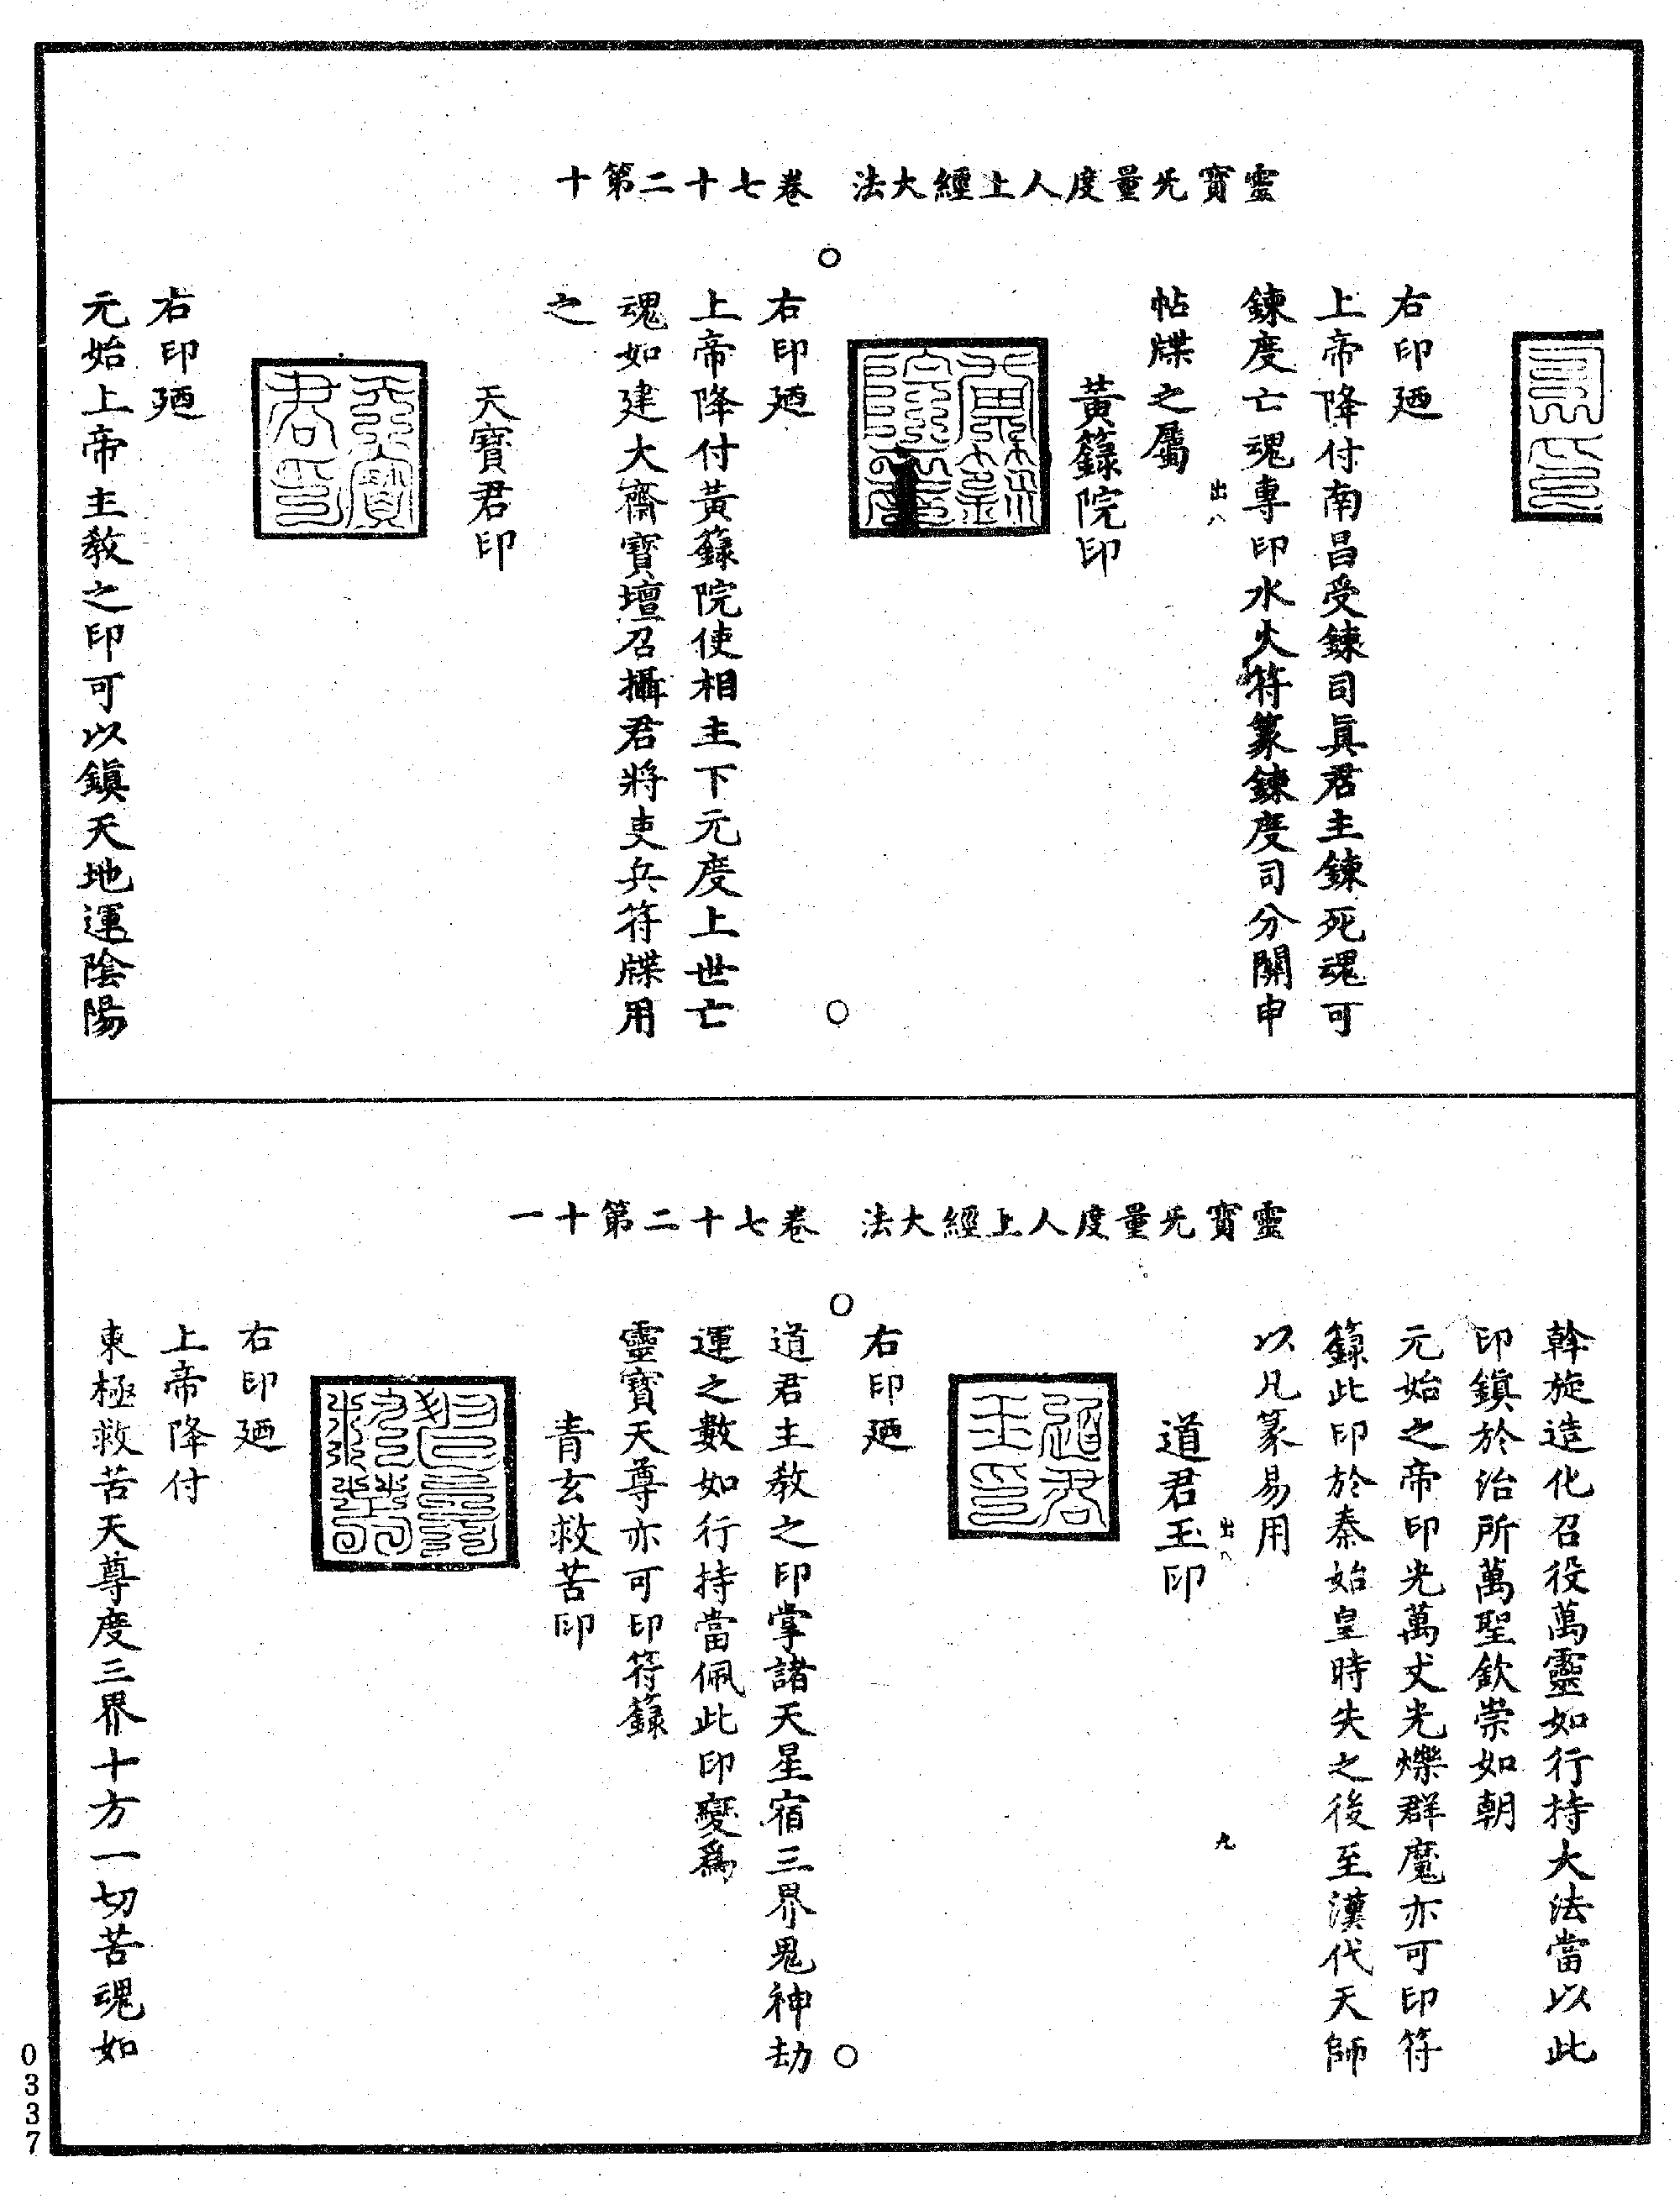 靈寳无量度人上經大法　卷七十二第十
右印廼
上帝降付南昌受鍊司眞君主鍊死魂可
鍊度亡魂專印水火符篆鍊度司分關申
出八
帖牒之屬
黃籙院印
右印廼
上帝降付黃籙院使相主下元度上世亡
魂如建大齋寳壇召攝君將吏兵符牒用
之
天寳君印
天寳君印
右印廼
元始上帝主教之印可以鎭天地運陰陽
靈寳无量度人上經大法　卷七十二第十一
斡旋造化召役萬靈如行持大法當以此
印鎭於治所萬聖欽崇如朝
元始之帝印光萬丈光爍群魔亦可印符
籙此印於秦始皇時失之後至漢代天師
以凡篆易用
出八
九
道君玉印
道君玉印
右印廼
道君主教之印掌諸天星宿三界鬼神劫
運之數如行持當佩此印變爲
靈寳天尊亦可印符籙
青玄救苦印
右印廼
上帝降付
東極救苦天尊度三界十方一切苦魂如
0337